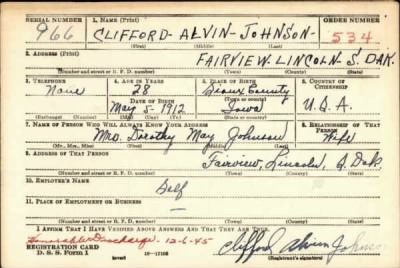 SERIAL NUMBER 1. NAME (Print) ORDER NUMBER
966 CLIFFORD - ALVIN - JOHNSON - 534
(First) (Middle) (Last)
2. ADDRESS (Print)
FAIRVIEW. LINCOLN S. DAK.
(Number and street or R. F. D. number) (Town) (County) (State)
3. TELEPHONE 4. AGE IN YEARS 5. PLACE OF BIRTH 6. COUNTRY OF CITIZENSHIP
None 28 Sioux County
DATE OF BIRTH
May 5- 1912 Iowa U.S.A.
(Exchange) (Number) (Mo.) (Day) (Yr.) (State or country)
7. NAME OF PERSON WHO WILL ALWAYS KNOW YOUR ADDRESS 8. RELATIONSHIP OF THAT PERSON
Mrs. Dorothy May Johnson Wife
(Mr., Mrs., Miss) (First) (Middle) (Last)
9. ADDRESS OF THAT PERSON
Fairview, Lincoln, S. Dak
(Number and street or R. F. D. number) (Town) (County) (State)
10. EMPLOYER'S NAME
Self
11. PLACE OF EMPLOYMENT OR BUSINESS
(Number and street or R. F. D. number) (Town) (County) (State)
I AFFIRM THAT I HAVE VERIFIED ABOVE ANSWERS AND THAT THEY ARE TRUE.
Honorable Discharge - 12-6-45 Clifford Alvin Johnson
REGISTRATION CARD
D. S. S. Form 1 (over) (Registrant's signature)